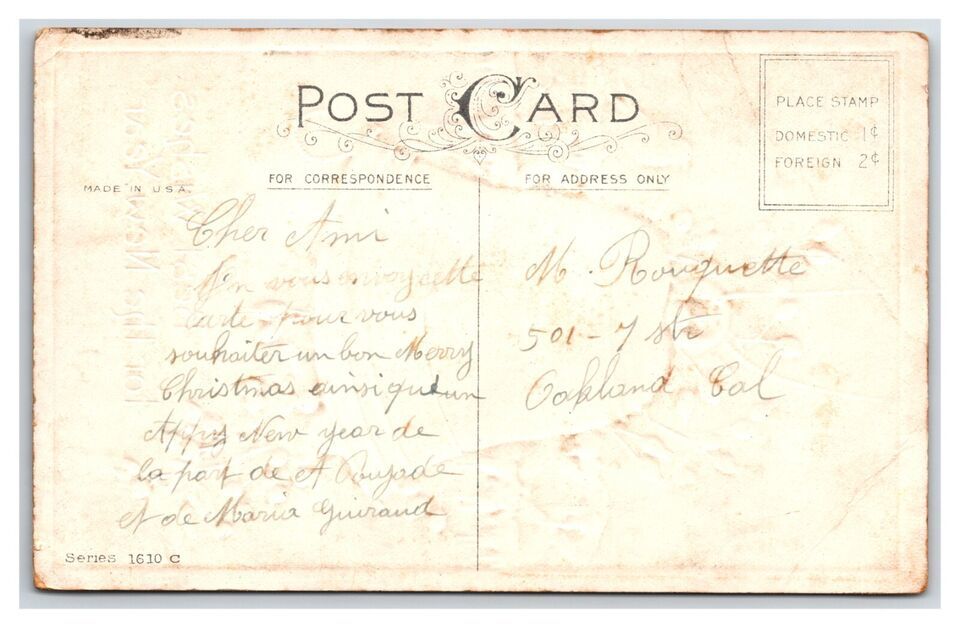 POST CARD
PLACE STAMP
DOMESTIC 1¢
FOREIGN 2¢
FOR CORRESPONDENCE
FOR ADDRESS ONLY
MADE IN U.S.A.
Cher Ami
J'n vous envoy cette
carte pour vous
souhaiter un bon Merry
Christmas ainsi qu'un
Appy New year de
la part de A Poujade
et de Maria Guiraud
M. Rouquette
501-7 str
Oakland Cal
Series 1610 C